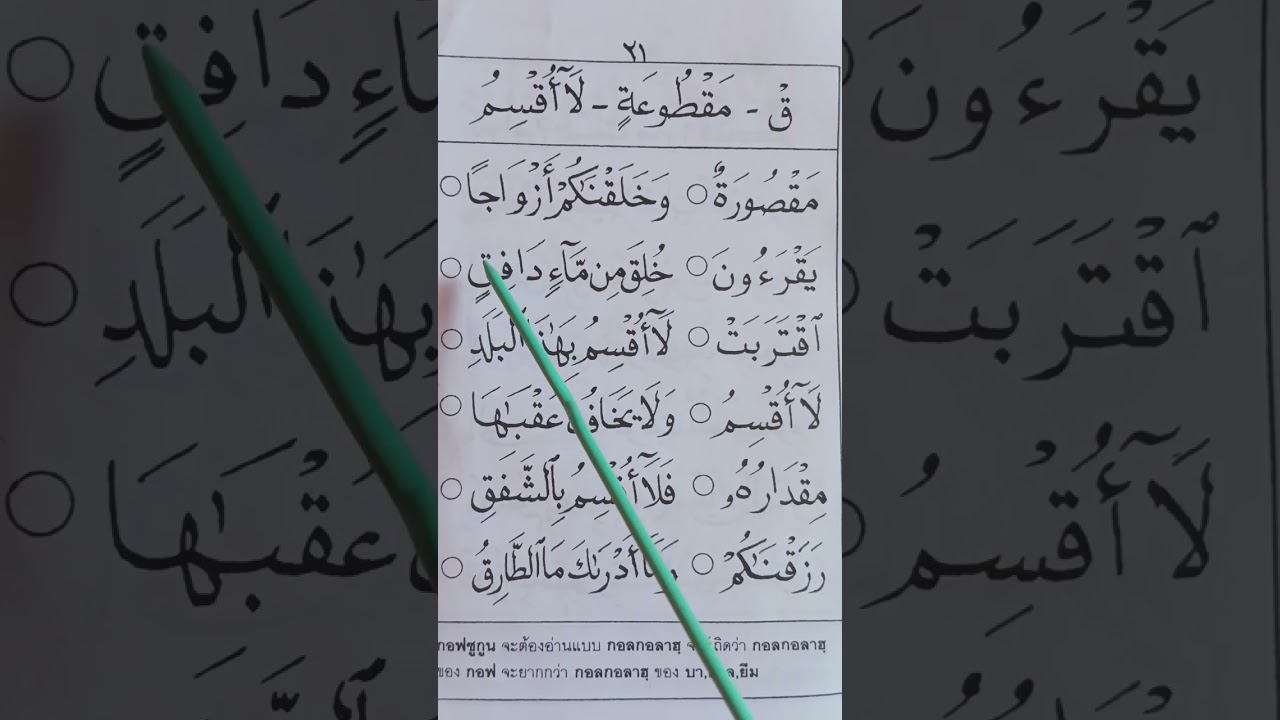 ٢١
قْ - مَقْطُوعَةٍ - لَآ أُقْسِمُ
مَقْصُورَةٌ ○ وَخَلَقْنَٰكُمْ أَزْوَاجًا ○
يَقْرَءُونَ ○ خُلِقَ مِن مَّآءٍ دَافِقٍ ○
ٱقْتَرَبَتْ ○ لَآ أُقْسِمُ بِهَٰذَا ٱلْبَلَدِ ○
لَآ أُقْسِمُ ○ وَلَا يَخَافُ عُقْبَٰهَا ○
مِقْدَارُهُۥ ○ فَلَآ أُقْسِمُ بِٱلشَّفَقِ ○
رَزَقْنَٰكُمْ ○ وَمَآ أَدْرَىٰكَ مَا ٱلطَّارِقُ ○
กอฟซูกูน จะต้องอ่านแบบ กอลกอลาฮฺ ถือว่า กอลกอลาฮฺ
ของ กอฟ จะยากกว่า กอลกอลาฮฺ ของ บา,ยีม